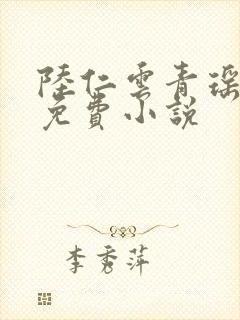 陸仁雲青瑶
免費小說
李秀萍